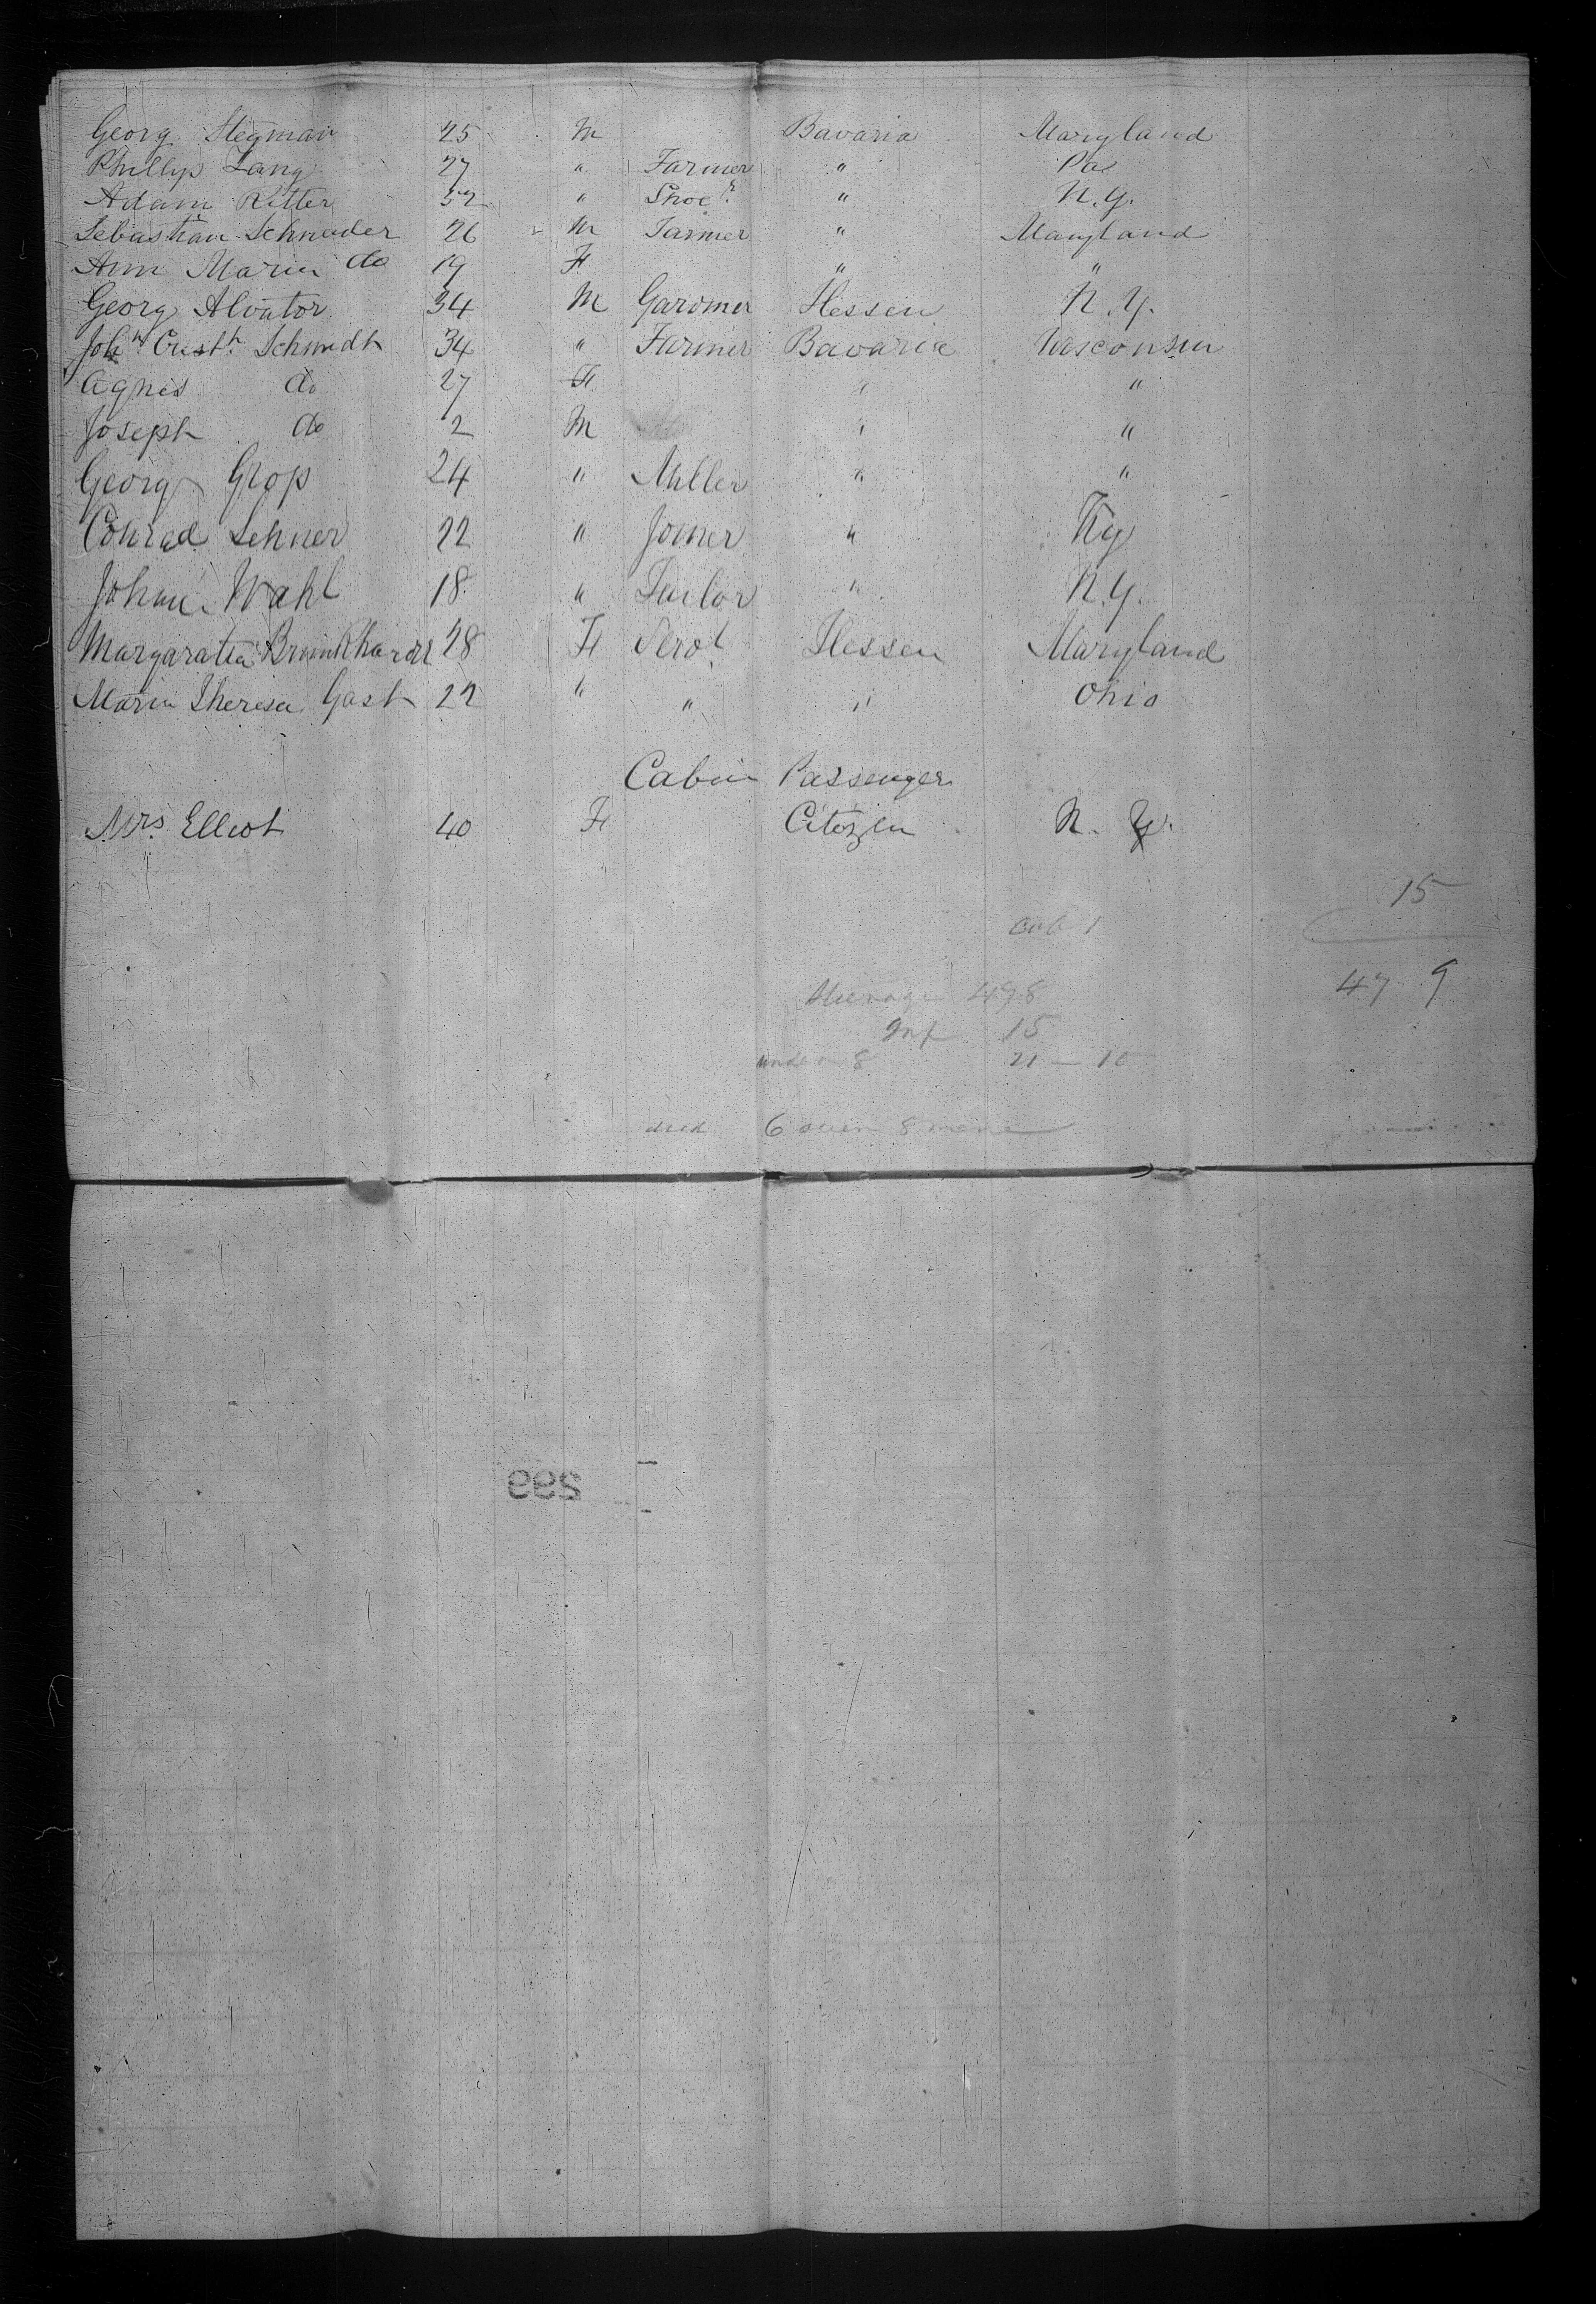 Georg Stegman 25 M Bavaria Maryland
Phillip Lang 27 " Farmer " Pa
Adam Ritter 52 " Shoer " N.Y.
Sebastian Schneider 26 " M Farmer " Maryland
Ann Maria do 19 F " "
Georg Alvator 34 M Gardner Hessen N.Y.
John Cristh. Schmidt 34 " Farmer Bavaria Wisconsin
Agnes do 27 F " "
Joseph do 2 M " "
Georg Grop 24 " Miller " "
Conrad Lehner 22 " Joiner " Ky
Johann Wahl 18 " Tailor " N.Y.
Margaratha 28 F Servt Hessen Maryland
Maria Theresa Gast 22 " " " Ohio
Cabin Passenger
Mrs. Elliot 40 F Citizen N. Y.
15
Cab 1
47 9
Steerage 498
Inf 15
under 8 21 —
died 6 over 8
299